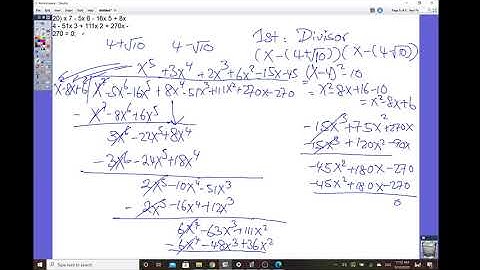 20) x 7 - 5x 6 - 16x 5 + 8x
4 - 51x 3 + 111x 2 + 270x -
270 = 0;
4+√10 4-√10
1st: Divisor
(x-(4+√10))(x-(4-√10))
(x-4)²-10
= x²-8x+16-10
= x²-8x+6
x⁵ +3x⁴ +2x³+6x²-15x-45
x²-8x+6 x⁷-5x⁶-16x⁵+8x⁴-51x³+111x²+270x-270
- x⁷-8x⁶+6x⁵
3x⁶-22x⁵+8x⁴
- 3x⁶-24x⁵+18x⁴
2x⁵-10x⁴-51x³
- 2x⁵-16x⁴+12x³
6x⁴-63x³+111x²
6x⁴-48x³+36x²
-15x³+75x²+270x
-15x³+120x²-90x
-45x²+180x-270
-45x²+180x-270
0